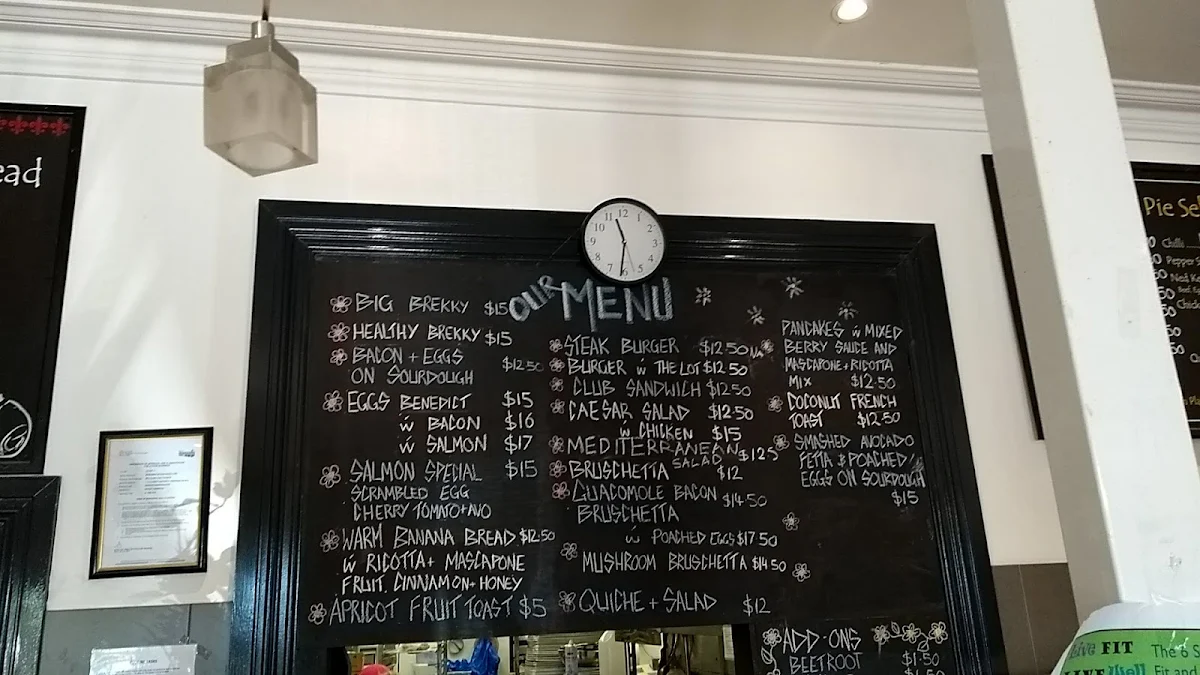 ead
OUR MENU
BIG BREKKY $15
HEALTHY BREKKY $15
BACON + EGGS
ON SOURDOUGH $12.50
EGGS BENEDICT $15
ẅ BACON $16
ẅ SALMON $17
SALMON SPECIAL $15
SCRAMBLED EGG
CHERRY TOMATO+AVO
WARM BANANA BREAD $12.50
ẅ RICOTTA+ MASCAPONE
FRUIT, CINNAMON+ HONEY
APRICOT FRUIT TOAST $5
STEAK BURGER $12.50
BURGER ẅ THE LOT $12.50
CLUB SANDWICH $12.50
CAESAR SALAD $12.50
ẅ CHICKEN $15
MEDITERRANEAN
SALAD $12.5
BRUSCHETTA $12
GUACOMOLE BACON
BRUSCHETTA $14.50
ẅ POACHED EGGS $17.50
MUSHROOM BRUSCHETTA $14.50
QUICHE + SALAD $12
PANCAKES ẅ MIXED
BERRY SAUCE AND
MASCAPONE+RICOTTA
MIX $12.50
COCONUT FRENCH
TOAST $12.50
SMASHED AVOCADO
FETTA & POACHED
EGGS ON SOURDOUGH
$15
ADD-ONS
BEETROOT $1.50
11 12 1
10 2
9 3
8 4
7 6 5
Pie Sel
Chilli
Pepper S
Chicke
Live FIT The 6 S
LIVE Well Fit and